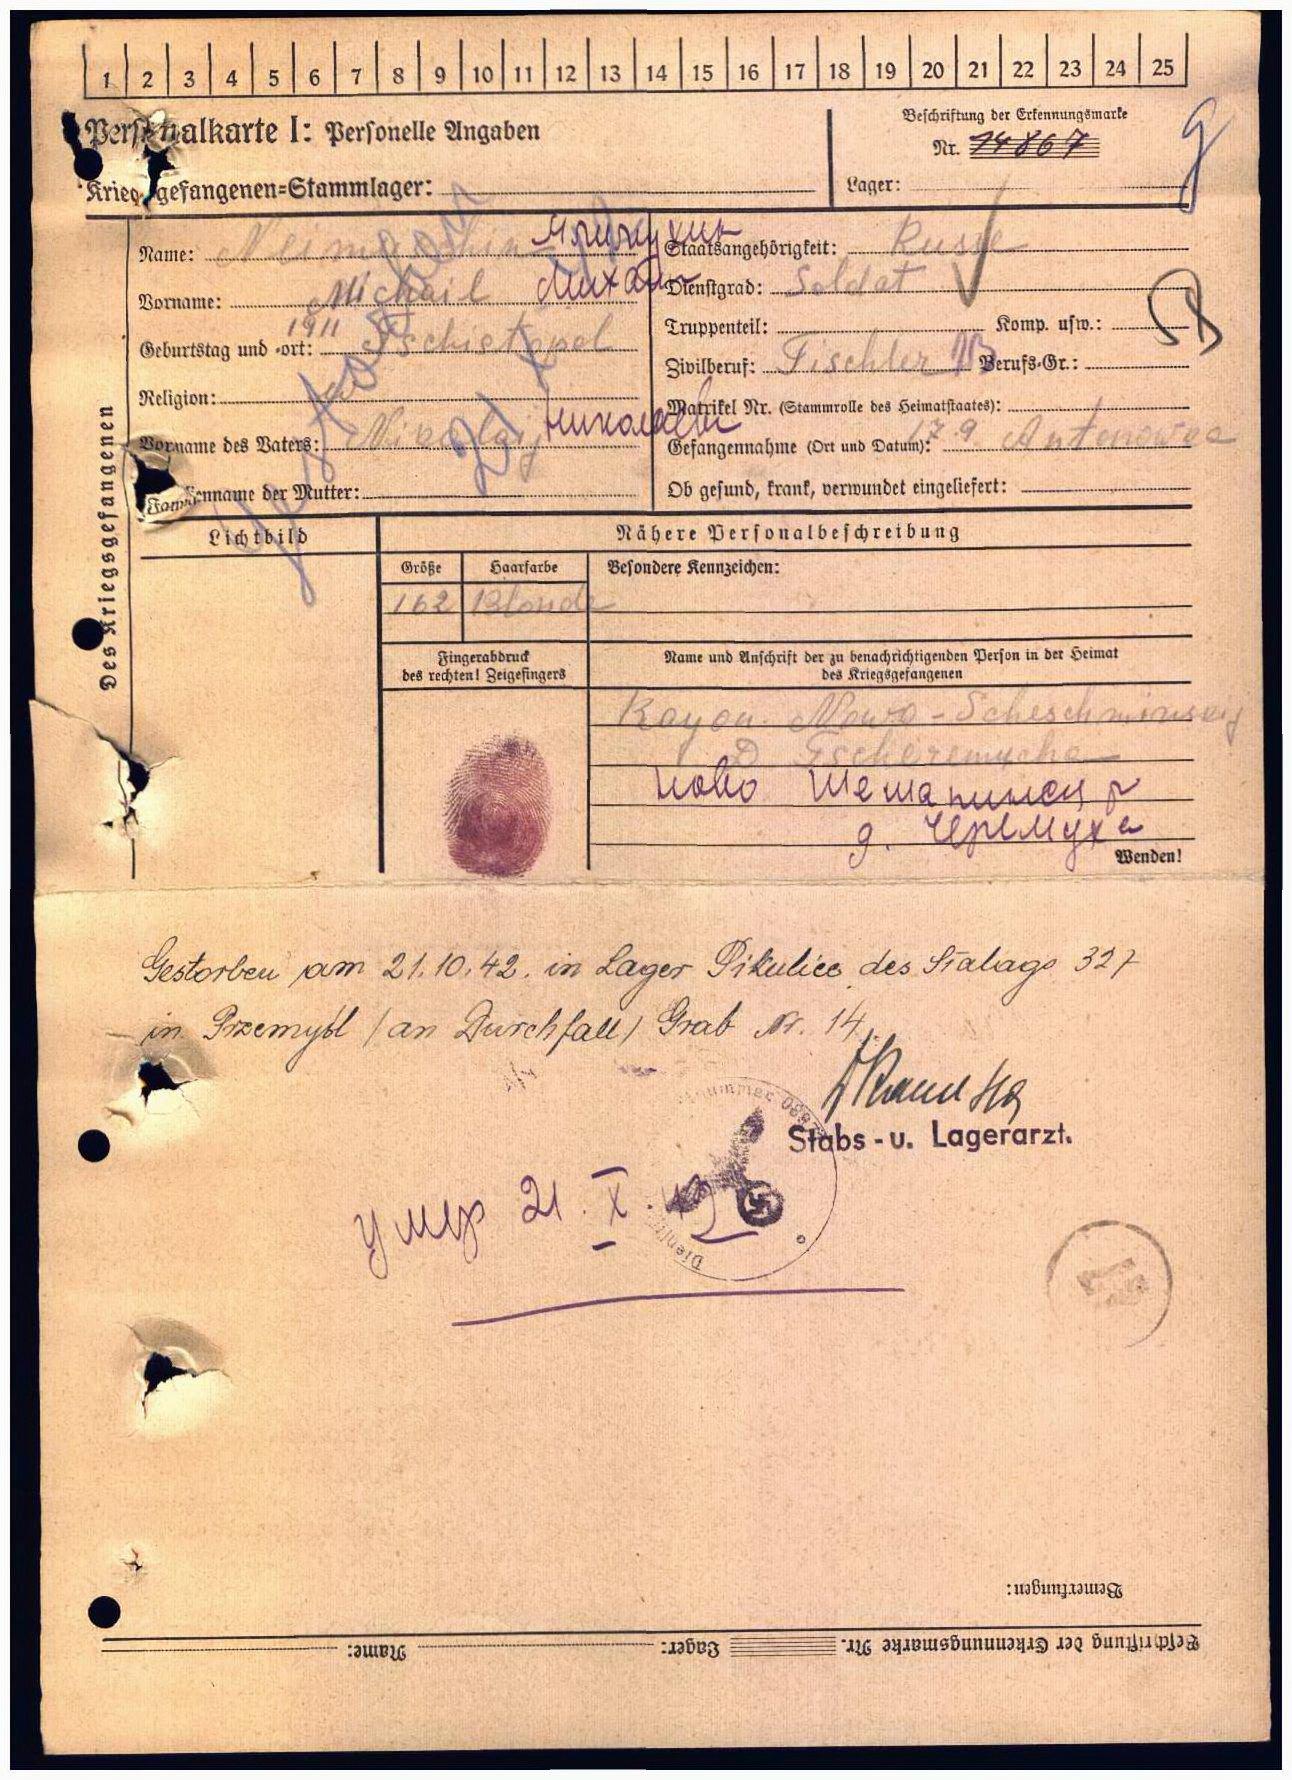 1 2 3 4 5 6 7 8 9 10 11 12 13 14 15 16 17 18 19 20 21 22 23 24 25
Personalkarte I: Personelle Angaben
Beschriftung der Erkennungsmarke
Nr. 14867
Kriegsgefangenen-Stammlager:
Lager:
Des Kriegsgefangenen
Name:
Vorname: Michail Михаил
1911
Geburtstag und -ort: Tschistopol
Religion:
Vorname des Vaters: Nikolaj
Familienname der Mutter:
Staatsangehörigkeit: Russe
Dienstgrad: Soldat
Truppenteil: Komp. usw.:
Zivilberuf: Tischler Berufs-Gr.:
Matrikel Nr. (Stammrolle des Heimatstaates):
Gefangennahme (Ort und Datum): 17.9.
Ob gesund, krank, verwundet eingeliefert:
Lichtbild
Nähere Personalbeschreibung
Größe Haarfarbe Besondere Kennzeichen:
162 Blonde
Fingerabdruck
des rechten! Zeigefingers
Name und Anschrift der zu benachrichtigenden Person in der Heimat
des Kriegsgefangenen
Rayon Nowo-Scheschminskij
D Tscheremucha
Ново
д. Черемуха
Wenden!
Gestorben am 21.10.42. in Lager Pikulice des Stalags 327
in Przemysl /an Durchfall/ Grab Nr. 14.
Stabs- u. Lagerarzt.
умер 21. X. 42
Bemerkungen:
Beschriftung der Erkennungsmarke Nr. Lager: Name: